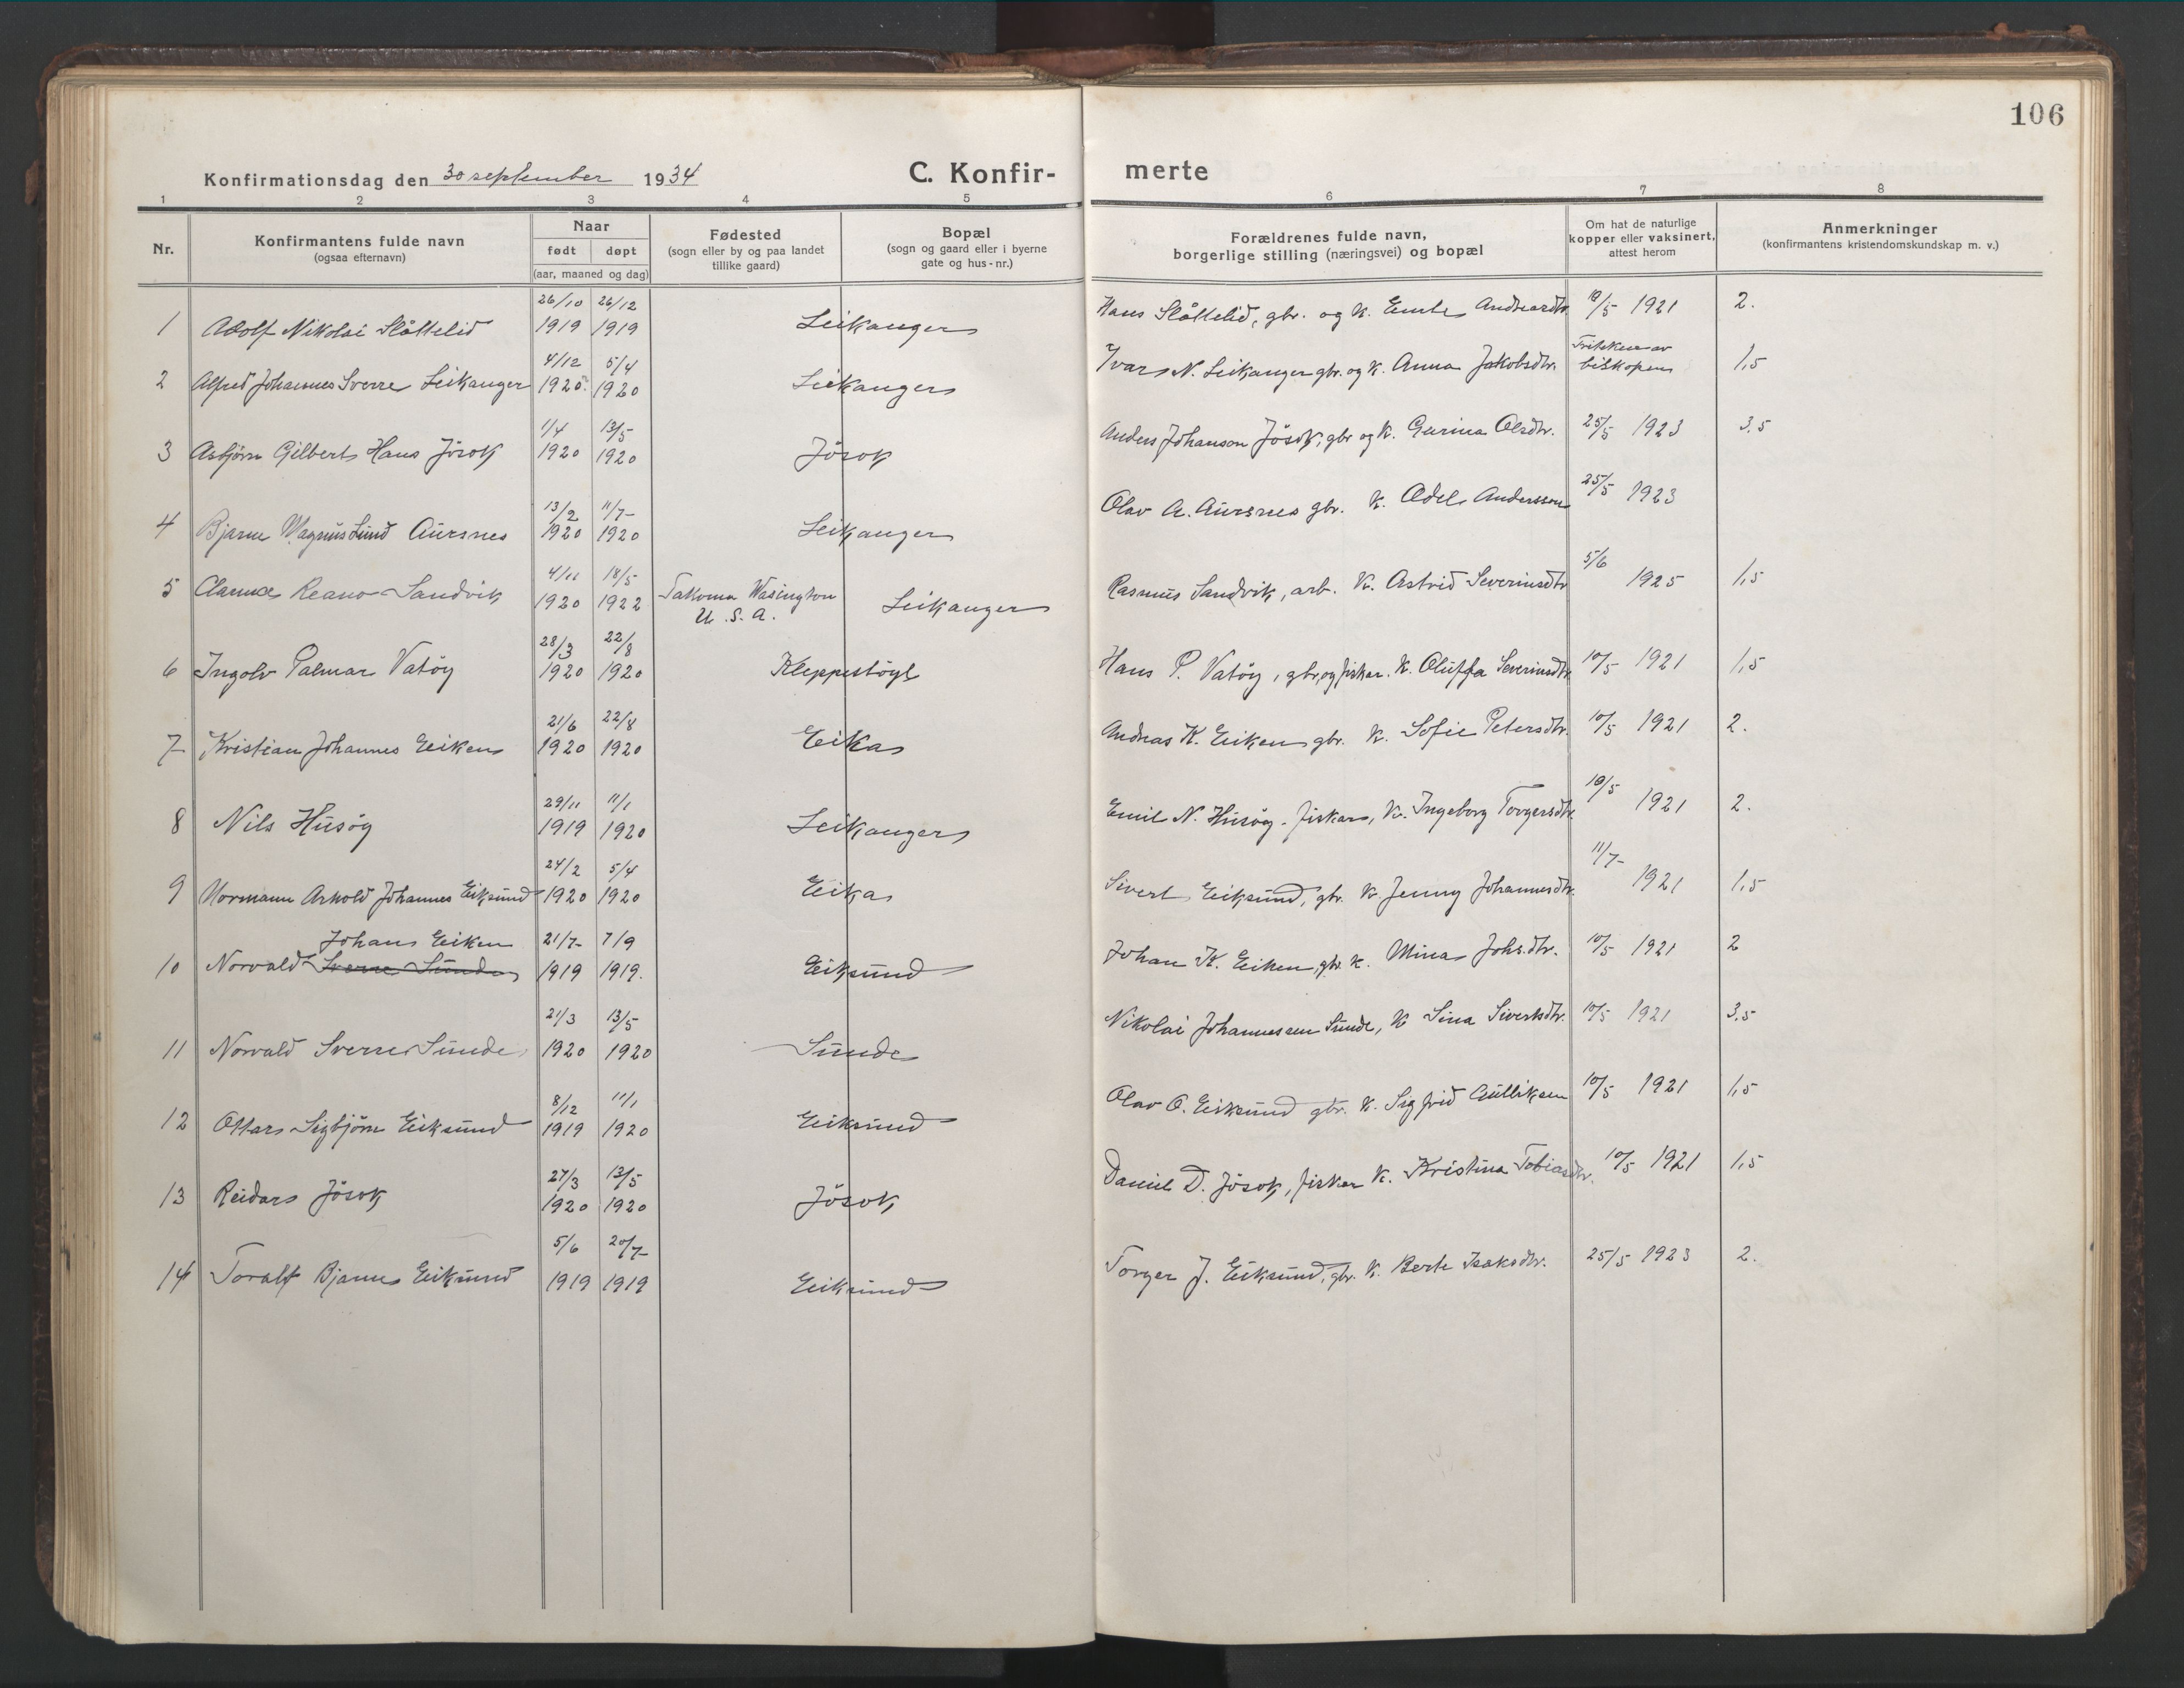 106
Konfirmationsdag den 30 september 1934 C. Konfir- merte
1 2 3 4 5 6 7 8
Nr. Konfirmantens fulde navn (ogsaa efternavn) Naar født døpt (aar, maaned og dag) Fødested (sogn eller by og paa landet tillike gaard) Bopæl (sogn og gaard eller i byerne gate og hus-nr.) Forældrenes fulde navn, borgerlige stilling (næringsvei) og bopæl Om hat de naturlige kopper eller vaksinert, attest herom Anmerkninger (konfirmantens kristendomskundskap m. v.)
1 Adolf Nikolai Slåttelid 26/10 1919 26/12 1919 Leikanger Hans Slåttelid, gbr. og k. Andreasdtr. 10/5 1921 2.
2 Alfred Johannes Sverre Leikanger 4/12 1920 5/4 1920 Leikanger Ivar N. Leikanger gbr. og k. Anna Jakobsdtr. biskopen 1,5
3 Asbjörn Gilbert Hans Jösok 1/4 1920 13/5 1920 Jösok Anders Johanson Jösok, gbr og k. Gurina Olsdtr. 25/5 1923 3,5
4 Bjarne Magnus Lund Aursnes 13/2 1920 11/7 1920 Leikanger Olav A. Aursnes gbr. k. Adel Anderssen 25/5 1923
5 Reano Sandvik 4/11 1920 18/5 1922 Takoma Wasington U.S.A. Leikanger Rasmus Sandvik, arb. k. Astrid Severinsdtr 5/6 1925 1,5
6 Ingolv Palmar Vatöy 28/3 1920 22/8 1920 Kleppestöyl Hans P. Vatöy, gbr, og fisker. k. Oluffa Severinsdtr. 10/5 1921 1,5
7 Kristian Johannes Eiken 21/6 1920 22/8 1920 Eika Andreas K. Eiken gbr. k. Sofie Petersdtr. 10/5 1921 2.
8 Nils Husöy 29/11 1919 11/1 1920 Leikanger Emil N. Husöy. fisker, k. Ingeborg Torgersdtr. 10/5 1921 2.
9 Normann Arnold Johannes Eiksund 24/2 1920 5/4 1920 Eika Sivert Eiksund, gbr. k. Jenny Johannesdtr. 11/7 1921 1,5
Johan Eiken
10 Norvald Sverre Sunde 21/7 1919 7/9 1919. Eiksund Johan K. Eiken, gbr. k. Mina Johs.dtr. 10/5 1921 2
11 Norvald Sverre Sunde 21/3 1920 13/5 1920 Sunde Nikolai Johannessen Sunde, k Lina Sivertsdtr. 10/5 1921 3,5
12 Ottar Sigbjörn Eiksund 8/12 1919 11/1 1920 Eiksund Olav O. Eiksund gbr. k. Sigfrid Gulliksen 10/5 1921 1,5
13 Reidar Jösok 27/3 1920 13/5 1920 Jösok Daniel D. Jösok, fisker k. Kristina Tobiasdtr. 10/5 1921 1,5
14 Toralf Bjarne Eiksund 5/6 1919 20/7 1919 Eiksund Torger J. Eiksund, gbr. k. Berte Isaksdtr. 25/5 1923 2.